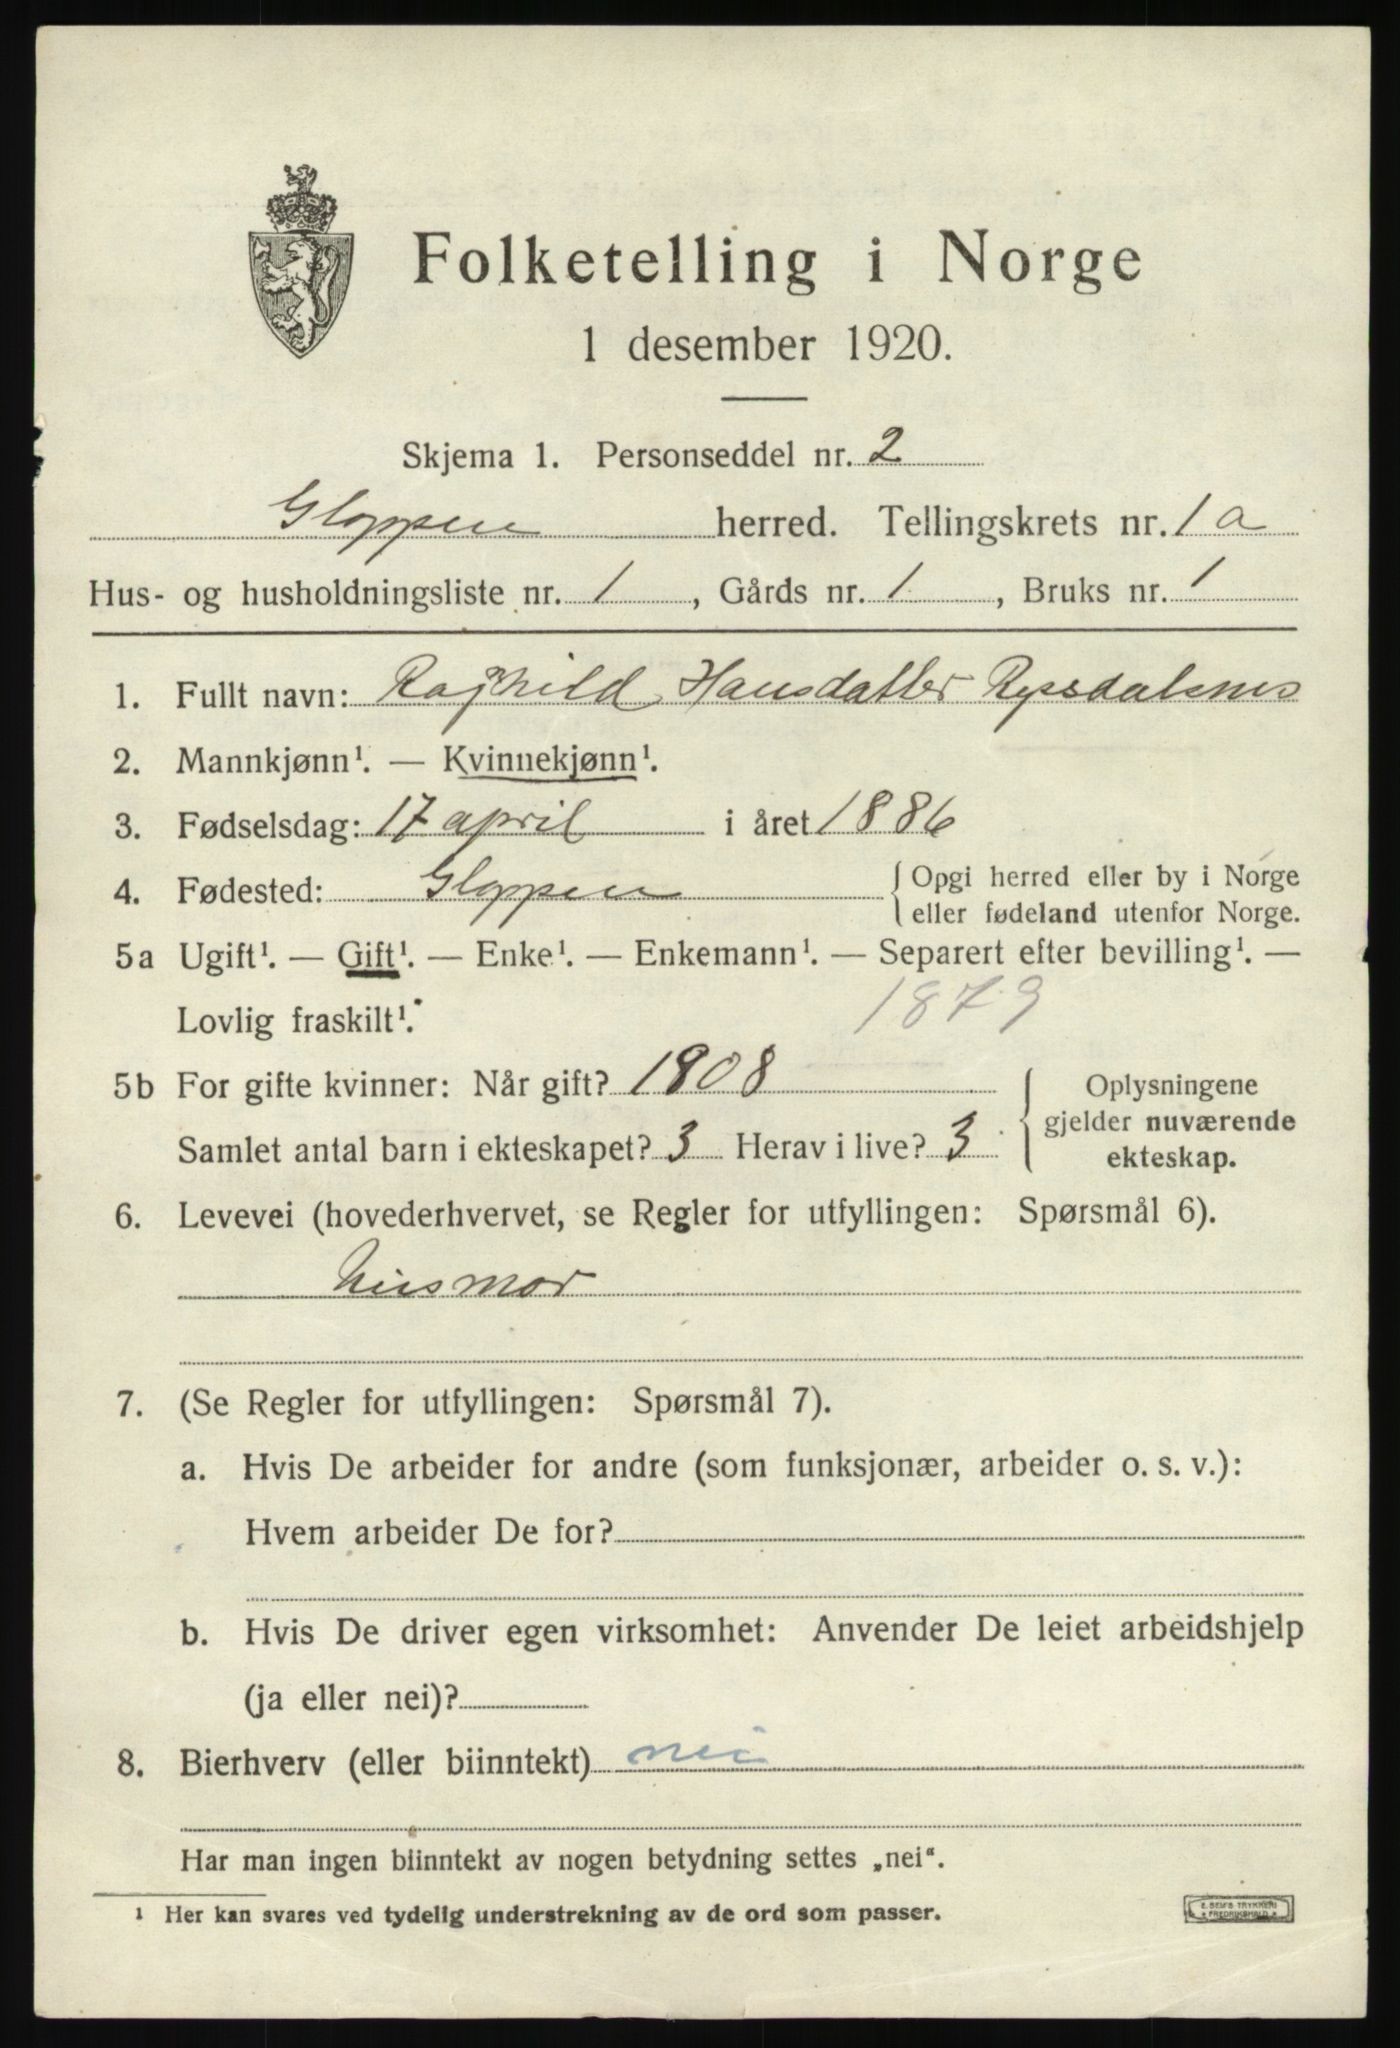 Folketelling i Norge
1 desember 1920.
Skjema 1. Personseddel nr. 2
Gloppen herred. Tellingskrets nr. 1 a
Hus- og husholdningsliste nr. 1, Gårds nr. 1, Bruks nr. 1
1. Fullt navn: Ragnhild Hansdatter Ryssdalsnes
2. Mannkjønn¹. — Kvinnekjønn¹.
3. Fødselsdag: 17 april i året 1886
4. Fødested: Gloppen { Opgi herred eller by i Norge
eller fødeland utenfor Norge.
5a Ugift¹. — Gift¹. — Enke¹. — Enkemann¹. — Separert efter bevilling¹. —
Lovlig fraskilt¹.
1879
5b For gifte kvinner: Når gift? 1908
Samlet antal barn i ekteskapet? 3 Herav i live? 3
Oplysningene
gjelder nuværende
ekteskap.
6. Levevei (hovederhvervet, se Regler for utfyllingen: Spørsmål 6).
Husmor
7. (Se Regler for utfyllingen: Spørsmål 7).
a. Hvis De arbeider for andre (som funksjonær, arbeider o. s. v.):
Hvem arbeider De for?
b. Hvis De driver egen virksomhet: Anvender De leiet arbeidshjelp
(ja eller nei)?
8. Bierhverv (eller biinntekt) nei
Har man ingen biinntekt av nogen betydning settes „nei“.
¹ Her kan svares ved tydelig understrekning av de ord som passer.
E. SEM'S TRYKKERI
FREDRIKSHALD